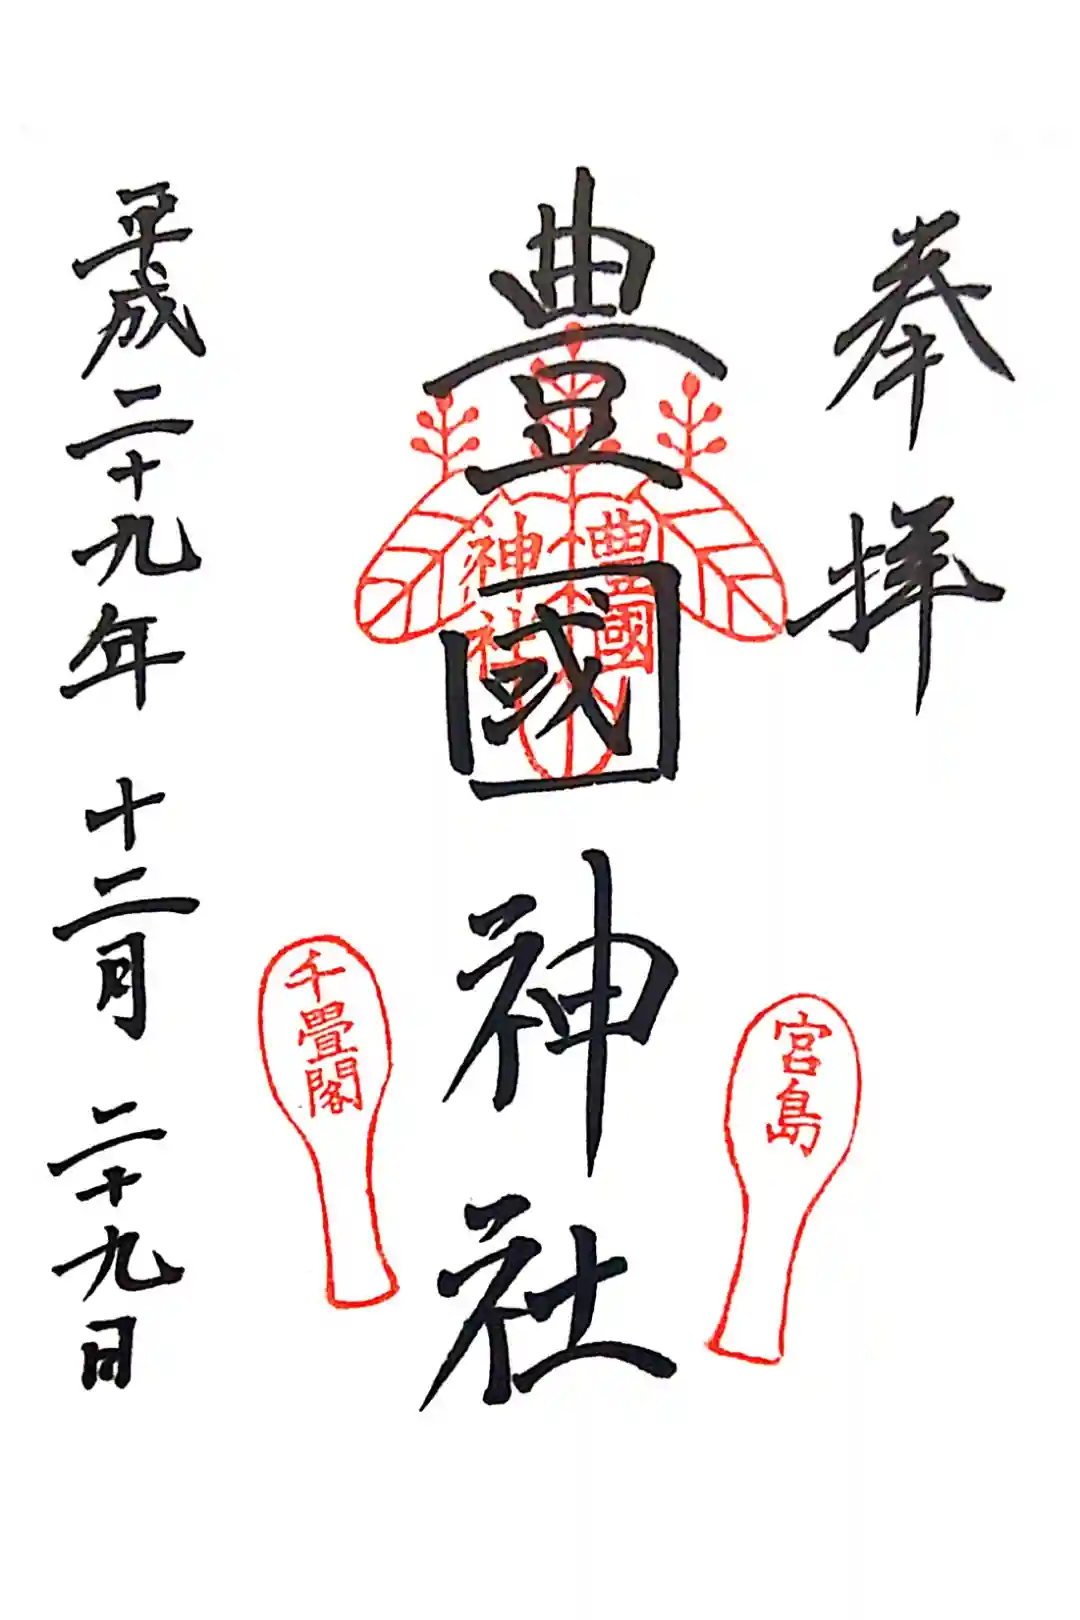 奉拝
豊國神社
豊國
神社
宮島
千畳閣
平成二十九年 十二月 二十九日